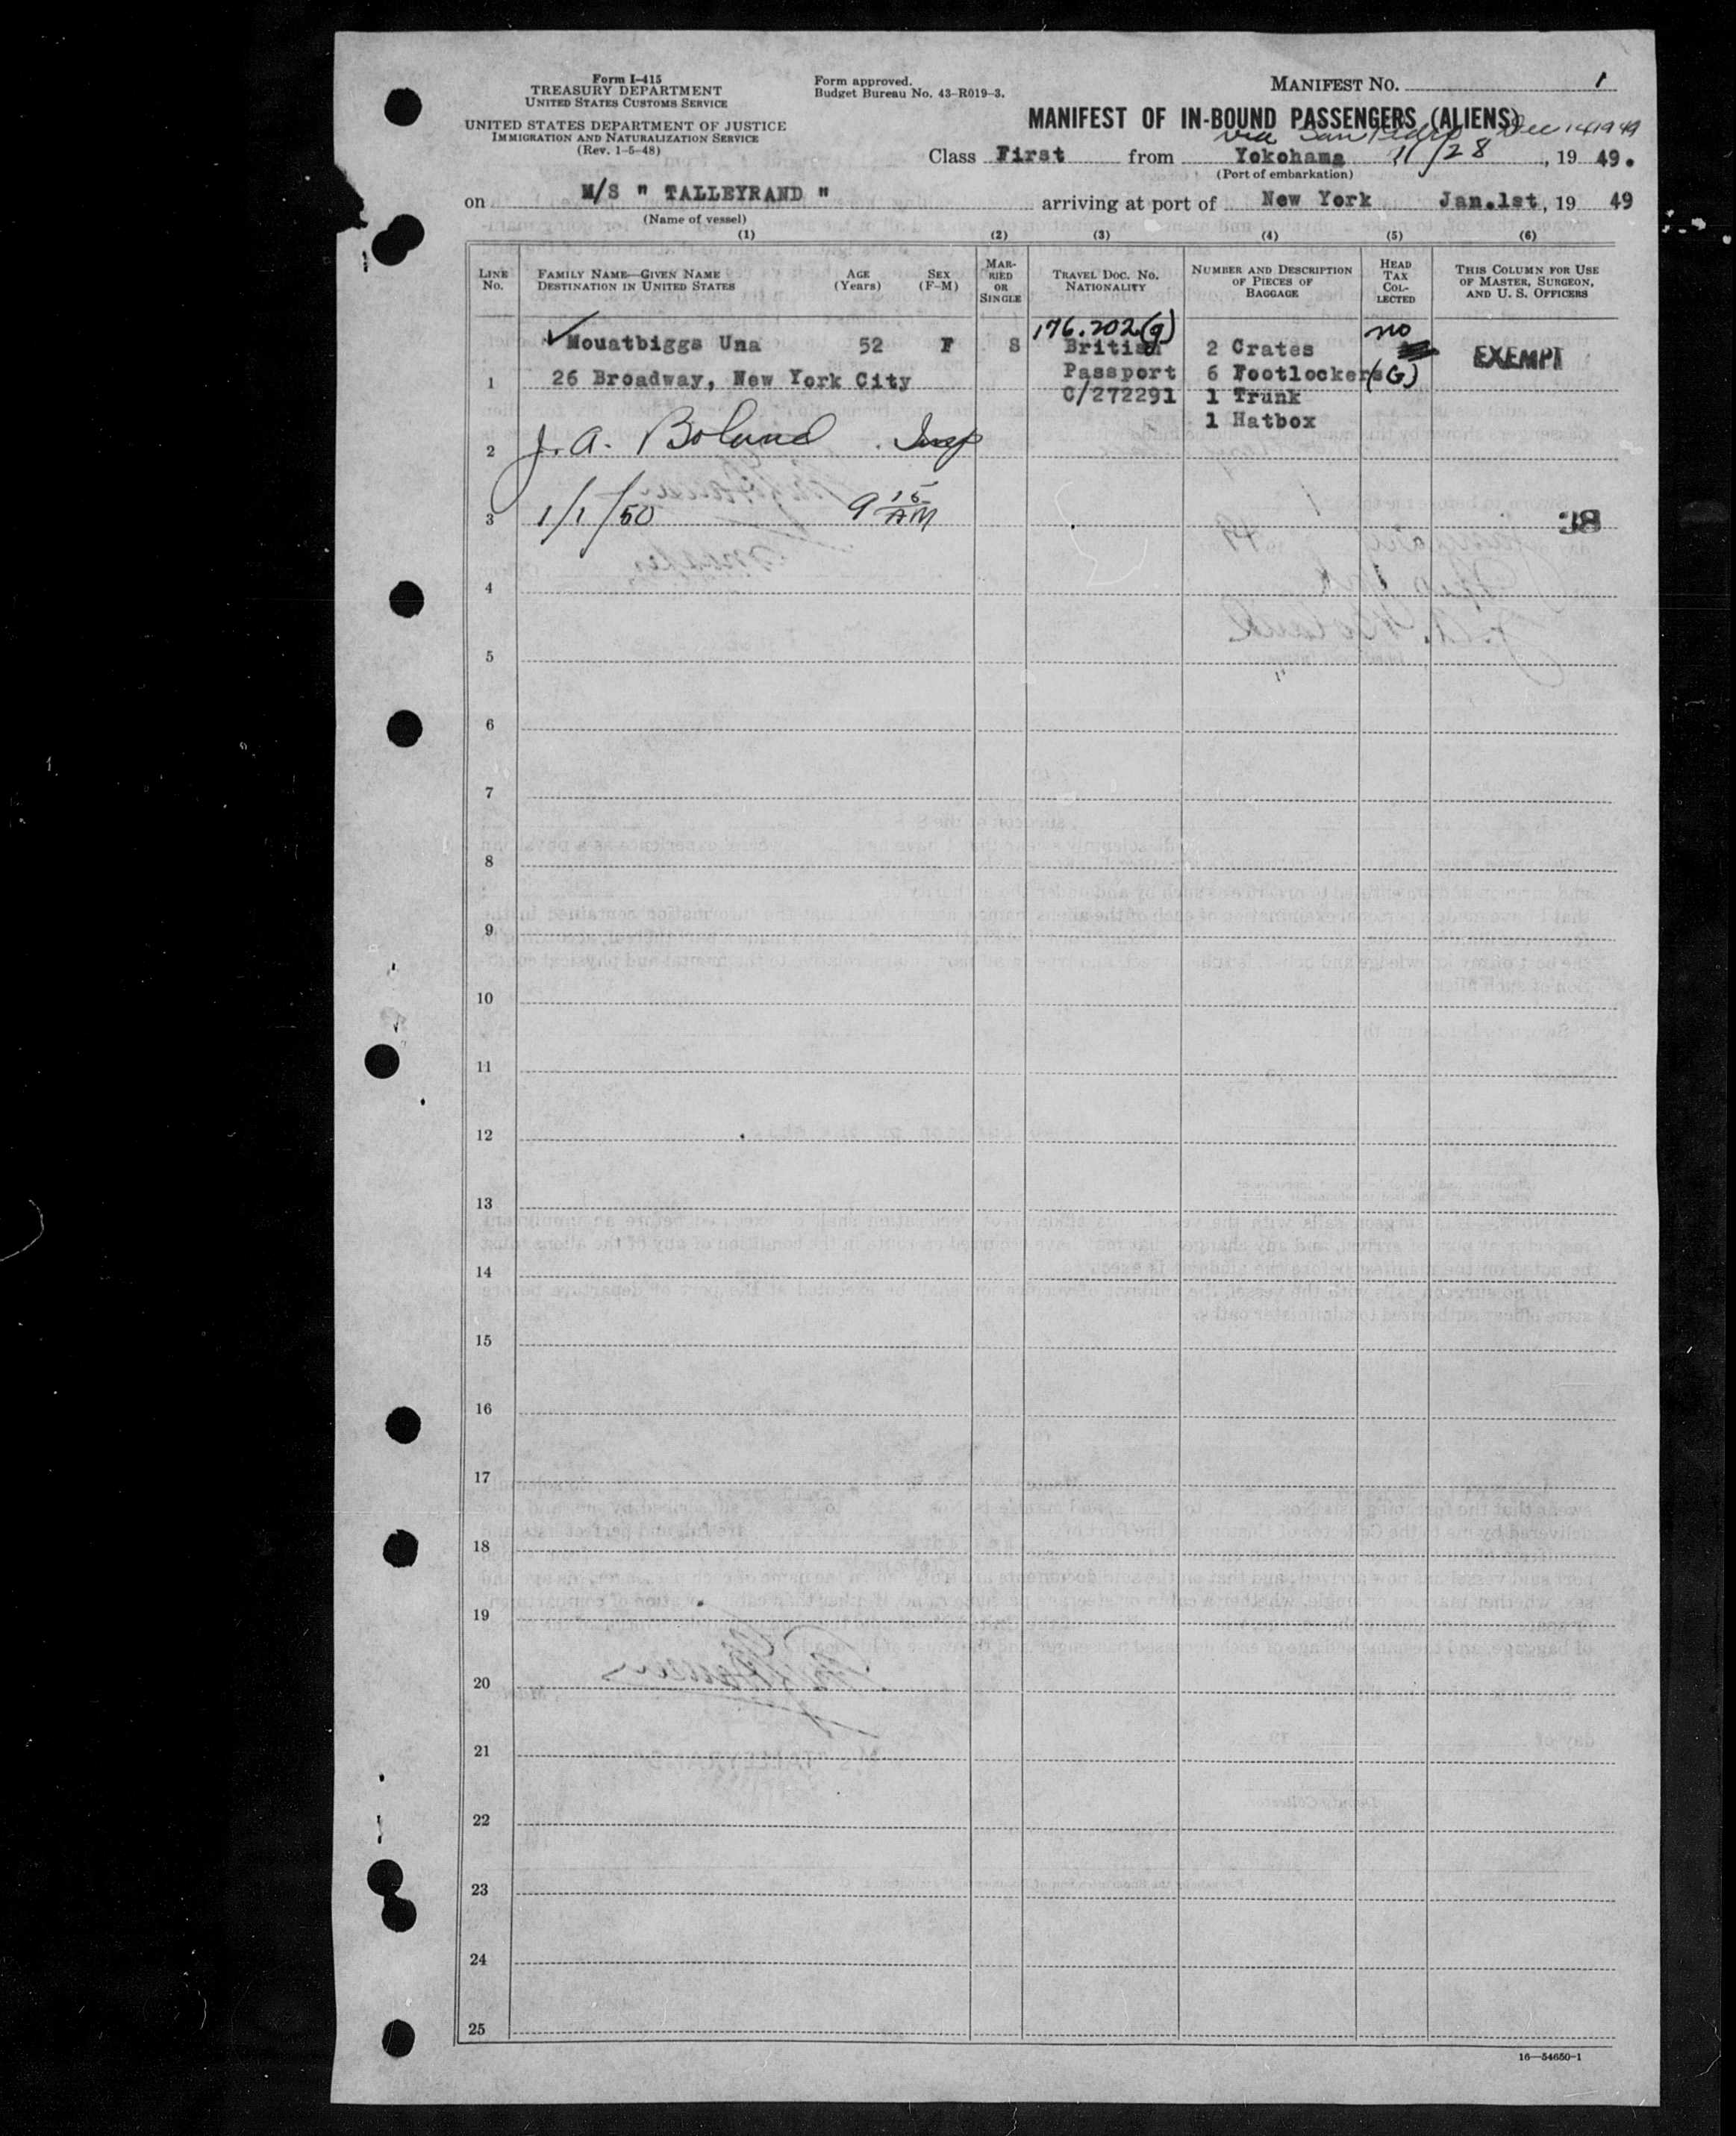 Form I-415
TREASURY DEPARTMENT
UNITED STATES CUSTOMS SERVICE
UNITED STATES DEPARTMENT OF JUSTICE
IMMIGRATION AND NATURALIZATION SERVICE
(Rev. 1-5-48)
Form approved.
Budget Bureau No. 43-R019-3.
MANIFEST NO. 1
MANIFEST OF IN-BOUND PASSENGERS (ALIENS)
via San Pedro Dec 14 1949
Class First from Yokohama 11/28, 19 49.
(Port of embarkation)
on M/S " TALLEYRAND " arriving at port of New York Jan.1st, 19 49
(Name of vessel)
(1) (2) (3) (4) (5) (6)
LINE NO.
FAMILY NAME—GIVEN NAME
DESTINATION IN UNITED STATES
AGE (Years)
SEX (F-M)
MARRIED OR SINGLE
TRAVEL DOC. NO.
NATIONALITY
NUMBER AND DESCRIPTION OF PIECES OF BAGGAGE
HEAD TAX COLLECTED
THIS COLUMN FOR USE OF MASTER, SURGEON, AND U. S. OFFICERS
176.202(g) no
Mouatbiggs Una 52 F S British 2 Crates EXEMPT
1 26 Broadway, New York City Passport 6 Footlockers (G)
C/272291 1 Trunk
1 Hatbox
2 J. A. Boland Insp
3 1/1/50 9 15 AM 38
4
5
6
7
8
9
10
11
12
13
14
15
16
17
18
19
20
21
22
23
24
25
16—54650-1